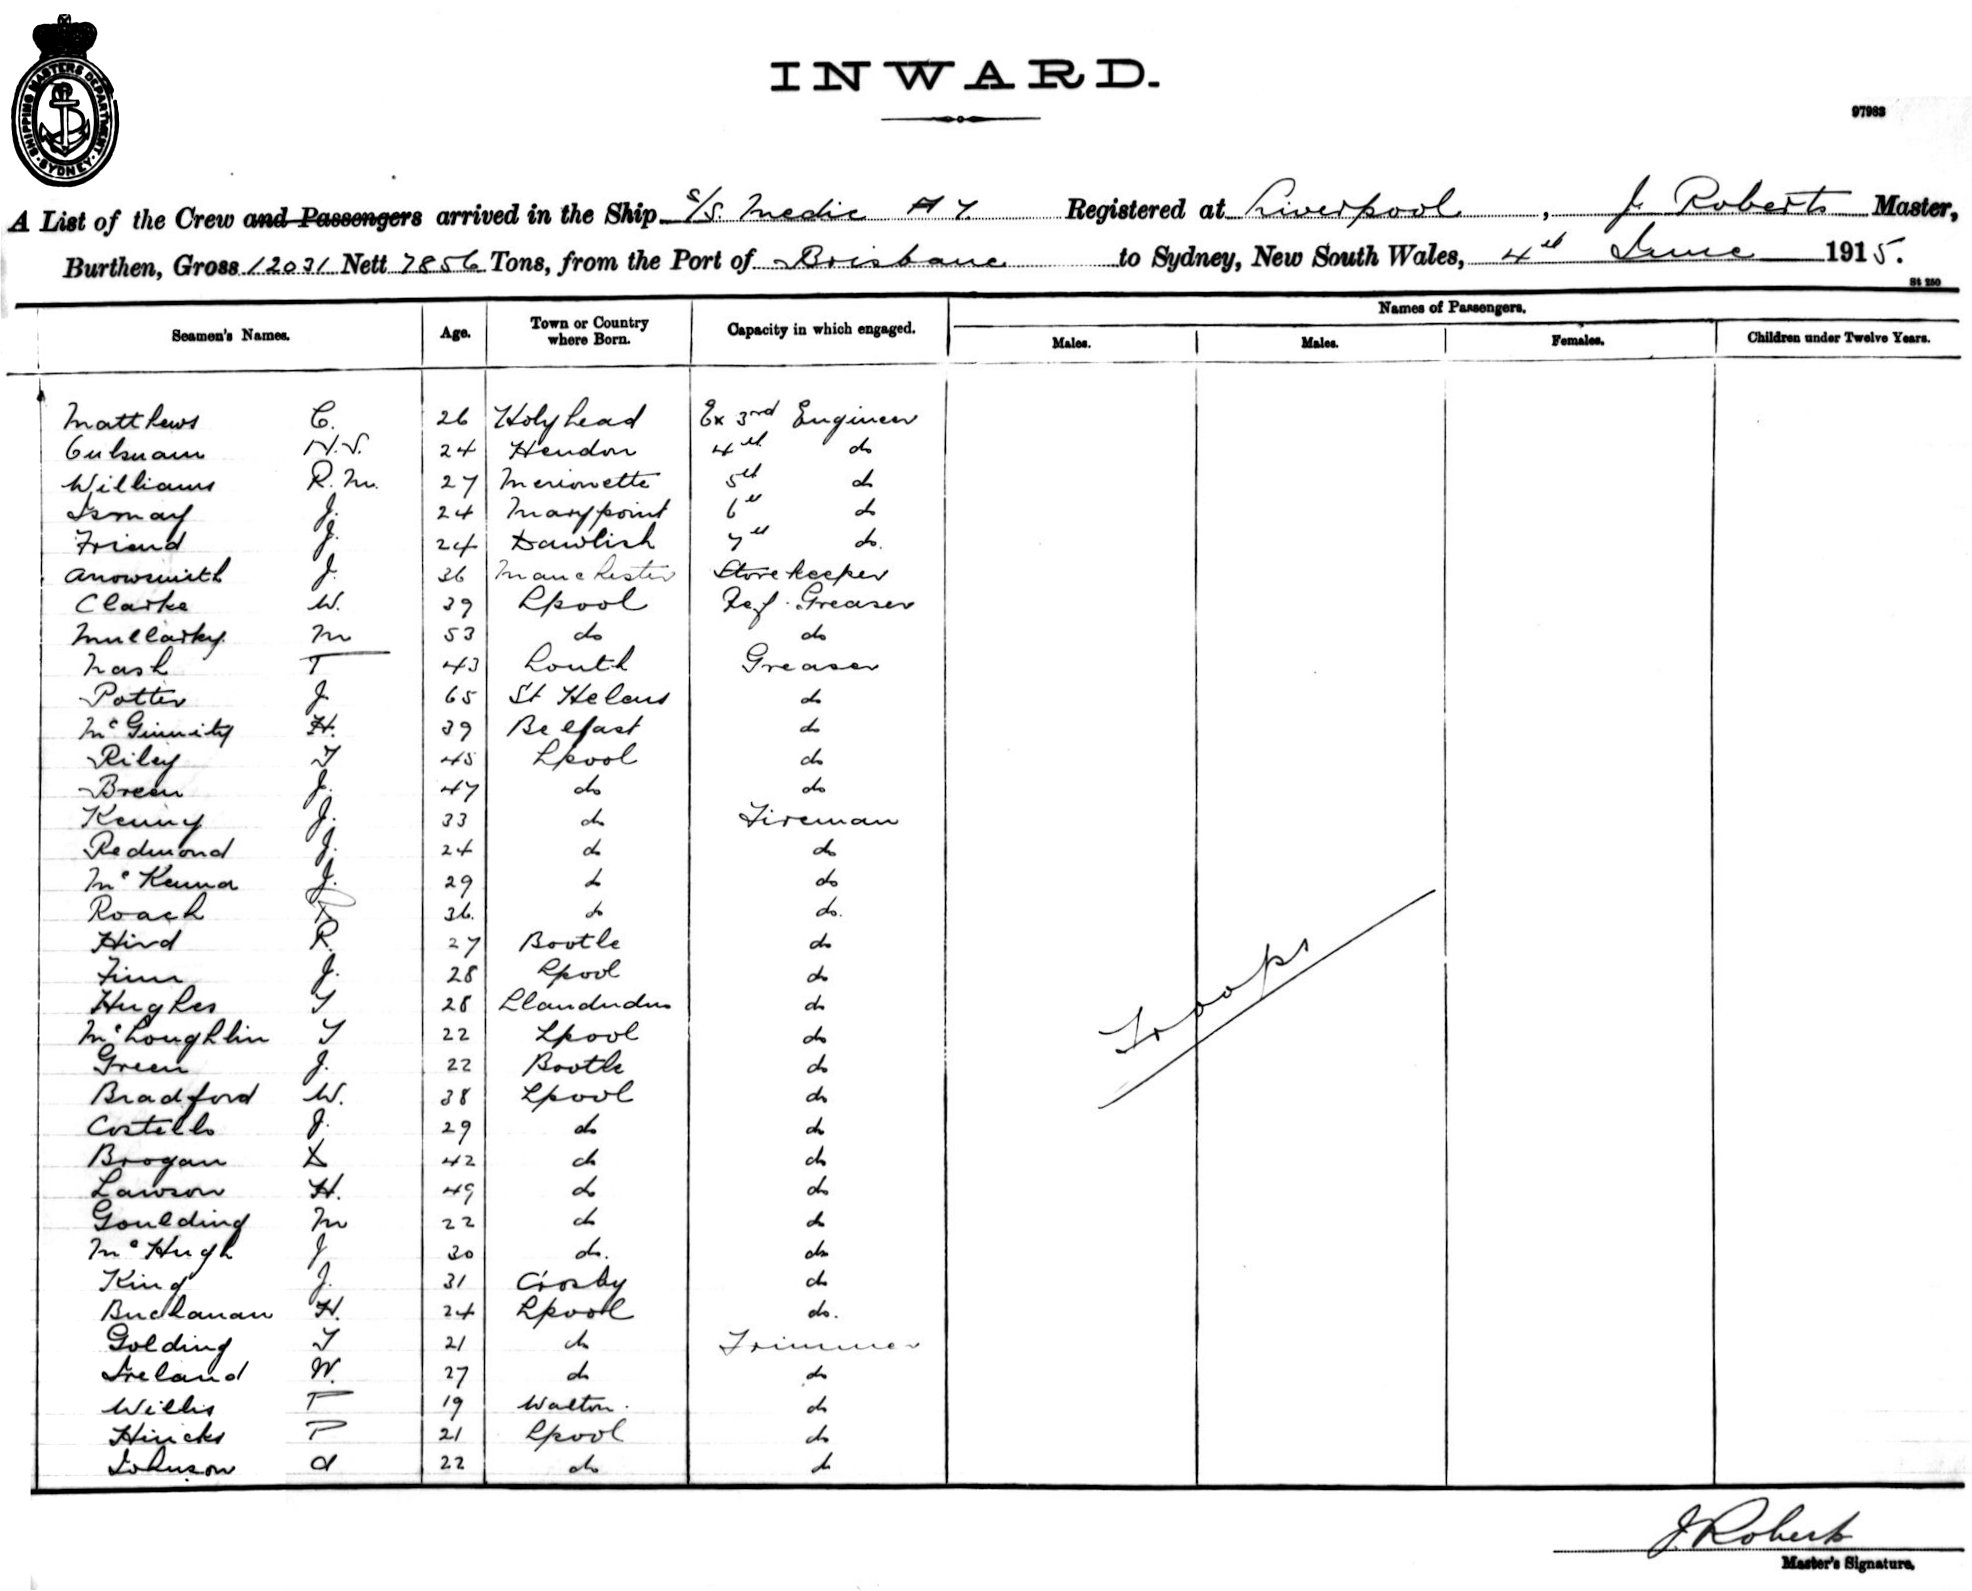 SHIPPING MASTERS DEPARTMENT
SYDNEY
INWARD.
97983
A List of the Crew and Passengers arrived in the Ship S/S. Medic A7. Registered at Liverpool, J. Roberts Master,
Burthen, Gross 12031 Nett 7856 Tons, from the Port of Brisbane to Sydney, New South Wales, 4th June 1915.
St 250
Names of Passengers.
Seamen's Names. Age. Town or Country where Born. Capacity in which engaged. Males. Males. Females. Children under Twelve Years.
Matthews C. 26 Holyhead Ex 3rd Engineer
H.S. 24 Hendon 4th do
Williams R.M. 27 Merionette 5th do
Ismay J. 24 Marypoint 6th do
Friend J. 24 Dawlish 7th do.
Arrowsmith J. 36 Manchester Storekeeper
Clarke W. 39 Lpool Ref. Greaser
Mullarky M 53 do do
Nash T 43 Louth Greaser
Potter J 65 St Helens do
McGinnity H. 39 Belfast do
Riley T 45 Lpool do
Breen J. 47 do do
Kenny J. 33 do Fireman
Redmond J. 24 do do
McKenna J. 29 do do
Roach 36. do do.
Hird R. 27 Bootle do
Finn J. 28 Lpool do
Hughes T 28 Llandudno do
McLoughlin T 22 Lpool do
Green J. 22 Bootle do
Bradford W. 38 Lpool do
Costello J. 29 do do
Brogan D 42 do do
Lawson H. 49 do do
Goulding M 22 do do
McHugh J 30 do. do
King J. 31 Crosby do
Buchanan H. 24 Lpool do.
Golding T 21 do Trimmer
Ireland W. 27 do do
Willis T 19 Walton. do
Hincks P 21 Lpool do
Johnson A 22 do do
Troops
J Roberts
Master's Signature.